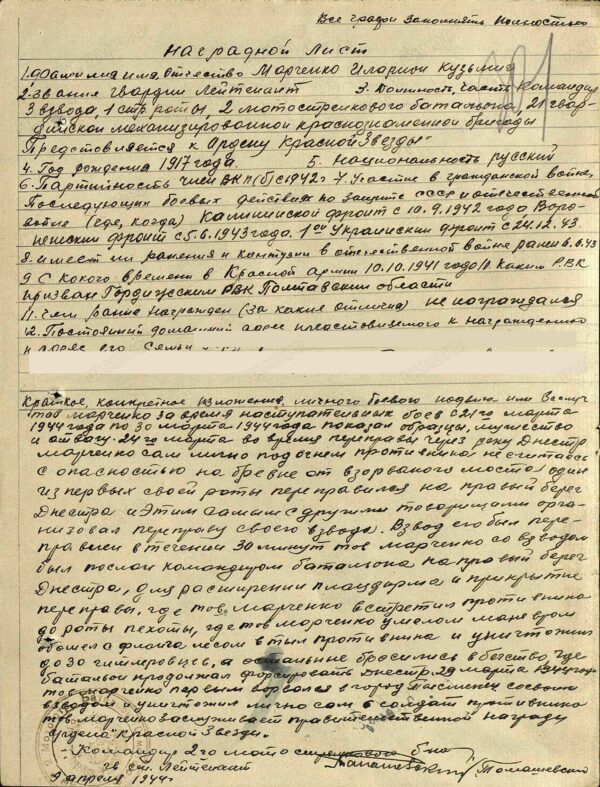 Все графы заполнять полностью
Наградной Лист
1. Фамилия имя, отчество Марченко Иларион Кузьмич
2. Звания гвардии Лейтенант 3. Должность, часть Командир
3 взвода, 1 стр. роты, 2 мотострелкового батальона, 21 гвар-
дейской механизированной краснознаменной бригады
Представляется к Ордену Красной Звезды"
4. Год рождения 1917 года. 5. Национальность русский
6. Партийность член ВКП(б) с 1942 г 7. Участие в гражданской войне,
Последующих боевых действиях по защите СССР и отечественной
войне (где, когда) Калининский фронт с 10.9.1942 года Воро-
нежский фронт с 5.6.1943 года. 1ый Украинский фронт с 24.12.43.
8. имеет ли ранения и контузии в отечественной войне ранен 6.8.43
9. С какого времени в Красной армии 10.10.1941 года 10. Каким РВК
призван РВК Полтавской области
11. Чем ранее награжден (за какие отличия) не награждался
12. Постоянный домашний адрес представляемого к награждению
и адрес его семьи
Краткое, конкретное изложения, личного боевого подвига или заслуг
тов Марченко за время наступательных боев с 21го марта
1944 года по 30 марта 1944 года показал образцы, мужество
и отвагу. 24го марта во время переправы через реку Днестр
Марченко сам лично под огнем противника не считаясь
с опасностью на бревне от взорваного моста один
из первых своей роты переправился на правый берег
Днестра и Этим самам с другими товарищами орга-
низовал переправу своего взвода. Взвод его был пере-
правлен в течении 30 минут тов Марченко со взводом
был послан командиром батальона на правый берег
Днестра, для расширении плацдарма и прикрытие
переправы, где тов. Марченко встретил противника
до роты пехоты, где тов Марченко умелом маневром
обошел с фланга лесом в тыл противника и уничтожил
до 30 гитлеровцев, а остальные бросились в бегство, где
батальон продолжал форсировать Днестр. 29 марта 1944 года
тов Марченко первым ворвался в город со своим
взводом и уничтожил лично сам 6 солдат противника
тов Марченко заслуживает правительственной награду
ордена "Красной Звезды".
Командир 2го мотострелкового б-на
гв ст. Лейтенант Томашевский
9 апреля 1944г